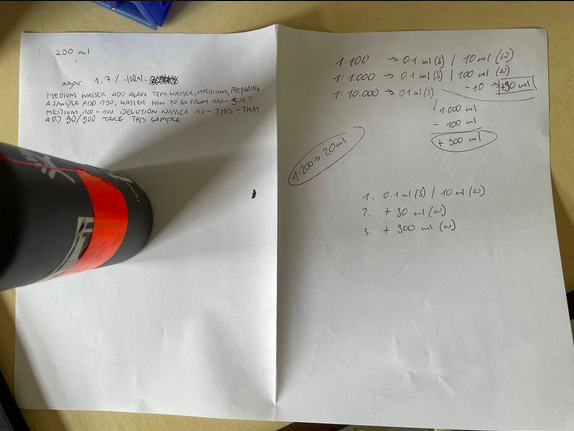 200 ml
agar 1.7%
MEDIUM WASSER ADD AGAIN WASSER, MEDIUM, PREPARING
A SAMPLE ADD 190, WASSER HOW TO GO FROM 100 - 900?
MEDIUM 100 - 100 DILUTION WASSER 10 - THIS - THAT
ADD 90/900 TAKE THIS SAMPLE
1:100 → 0.1 ml (S) | 10 ml (W)
1:1.000 → 0.1 ml (S) | 100 ml (W)
- 10 → +90 ml
1:10.000 → 0.1 ml (S)
1.000 ml
- 100 ml
+ 900 ml
1:200 → 20 ml
1. 0.1 ml (S) / 10 ml (W)
2. + 90 ml (W)
3. + 900 ml (W)